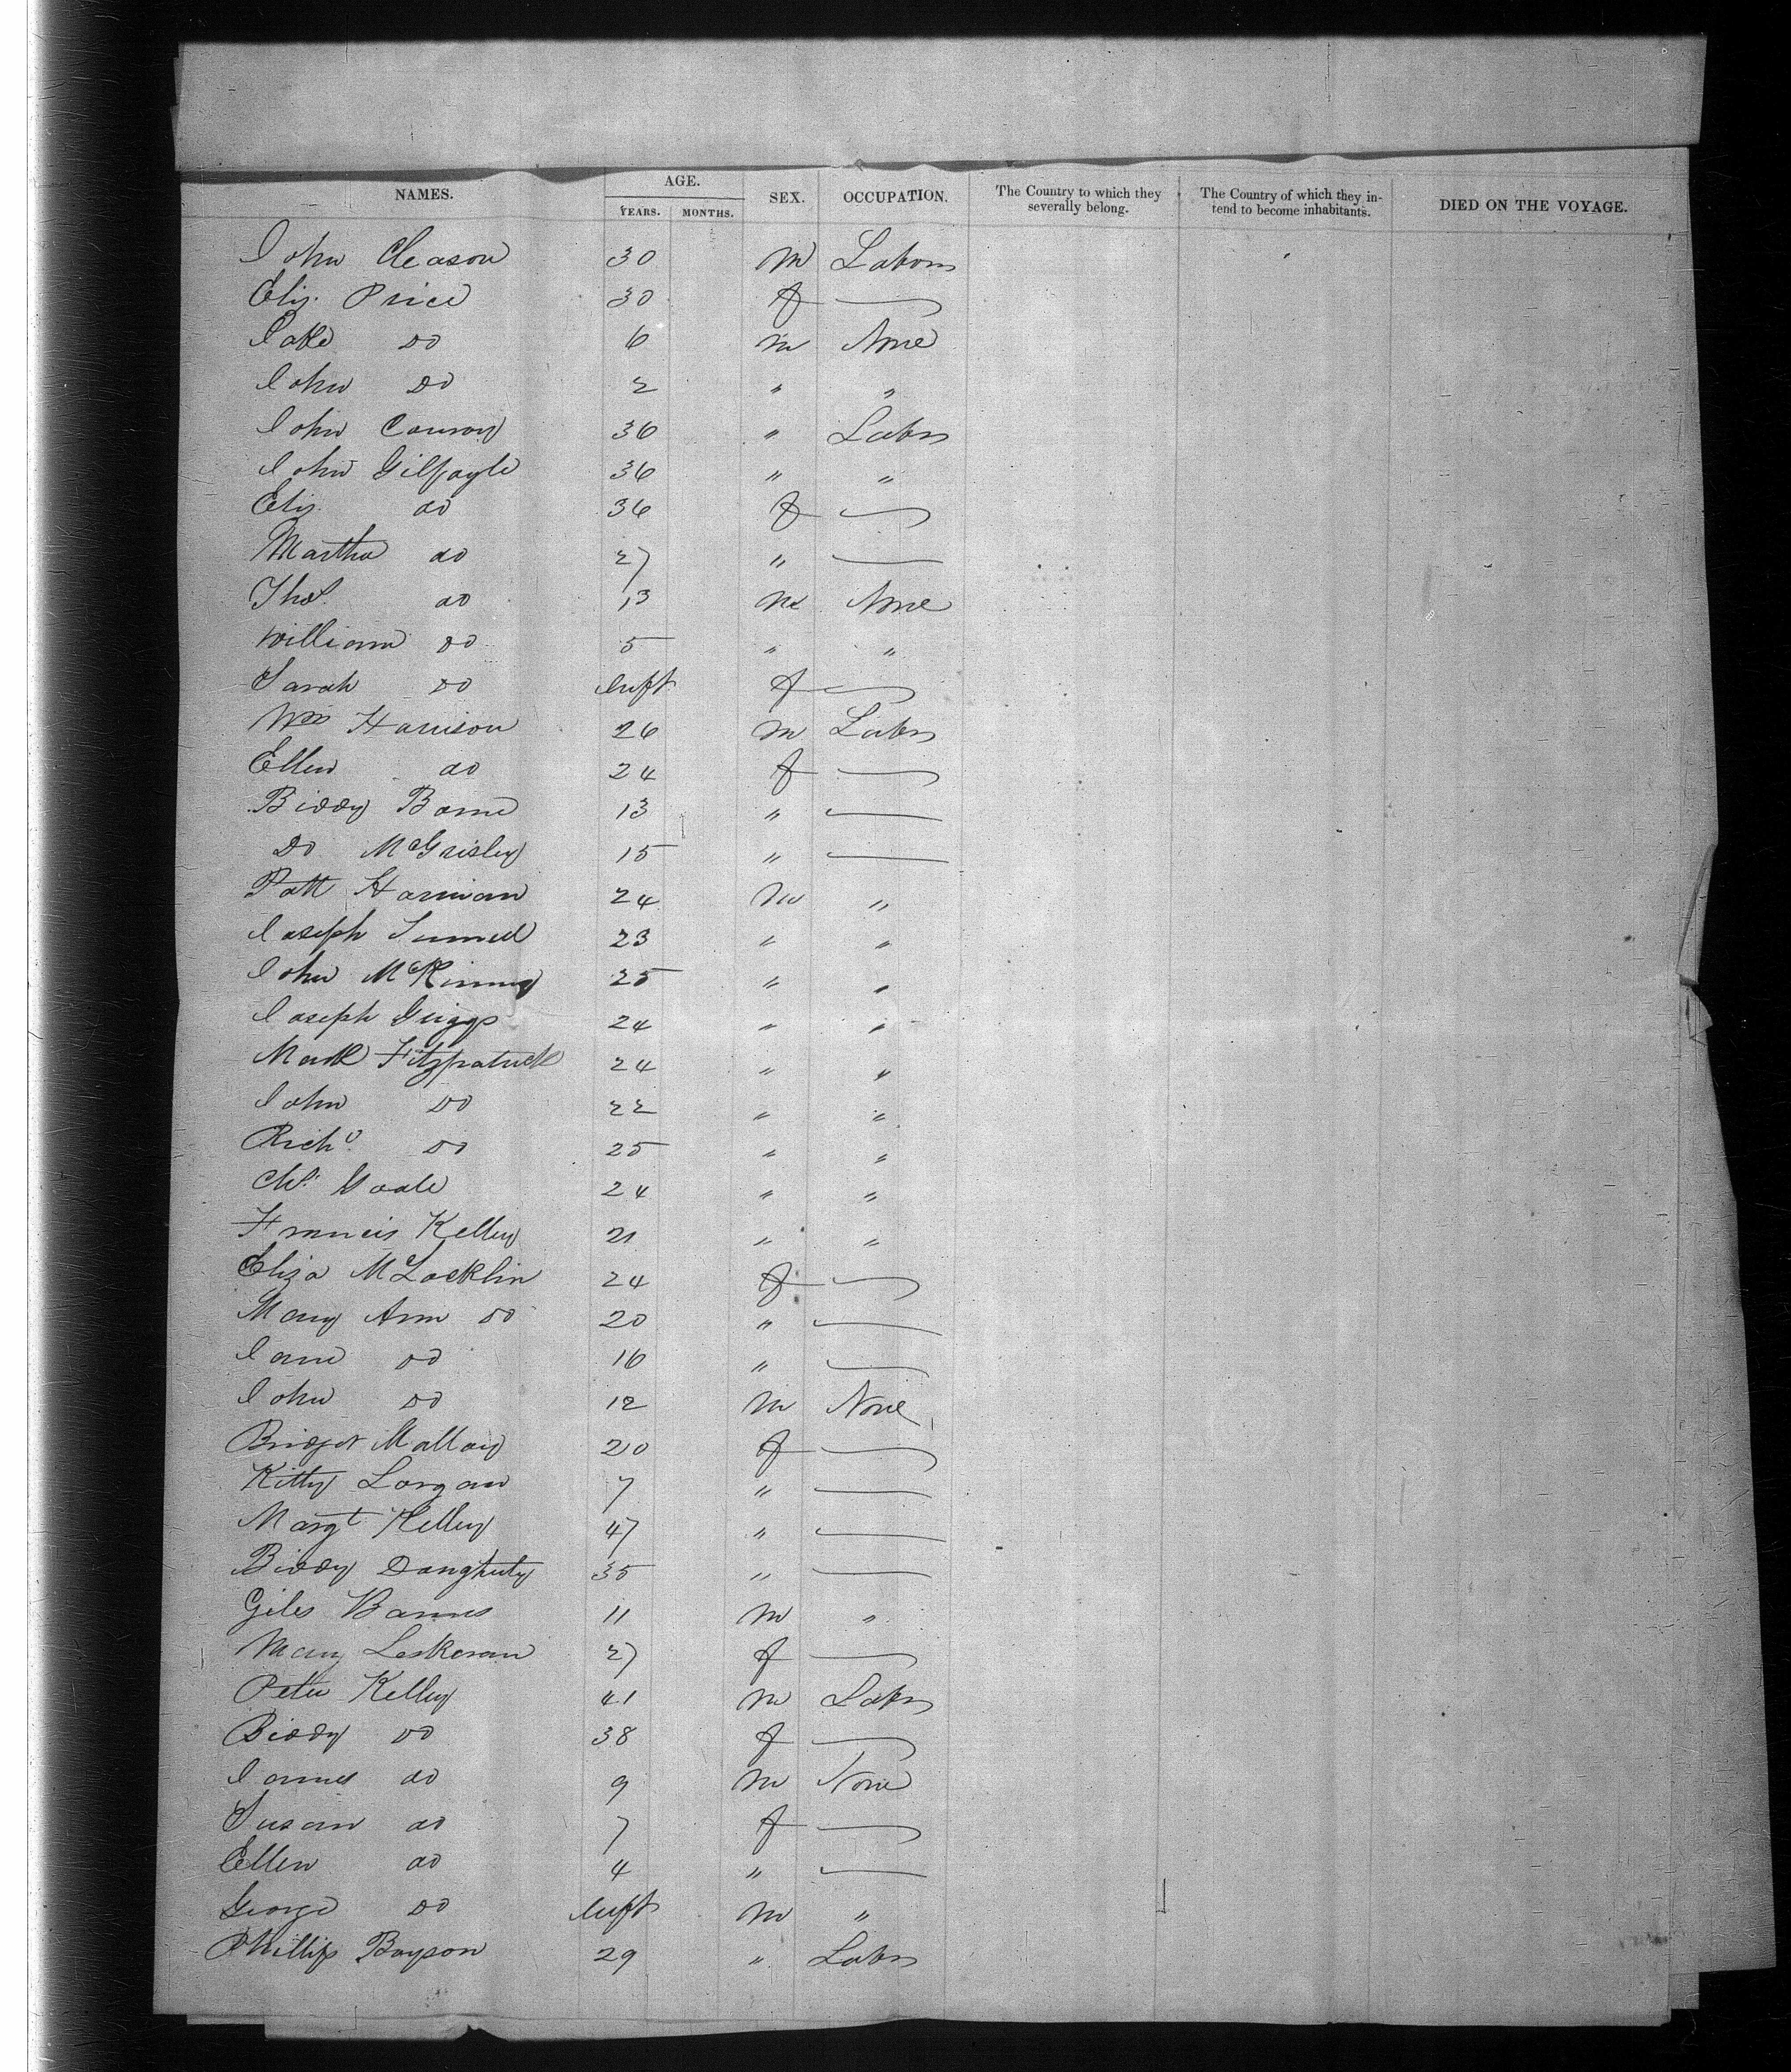 NAMES. AGE. SEX. OCCUPATION. The Country to which they severally belong. The Country of which they intend to become inhabitants. DIED ON THE VOYAGE.
YEARS. MONTHS.
John Gleason 30 m Labors
Eliz. Price 30 f —
do 6 m None
John Do 2 " "
John Conroy 36 " Labrs
John Gilfoyle 36 " "
Eliz. do 36 f —
Martha do 27 " —
Thos. do 13 m None
William Do 5 " "
Sarah Do Inft f —
Wm Harrison 26 m Labrs
Ellen do 24 f —
Biddy 13 " —
Do 15 " —
Patt 24 m "
Joseph 23 " "
John McKinney 25 " "
Joseph Griggs 24 " "
Mark Fitzpatrick 24 " "
John Do 22 " "
Richd. Do 25 " "
24 " "
Francis Kelley 21 " "
Eliza McLacklin 24 f —
Mary Ann Do 20 " —
Jane Do 16 " —
John Do 12 m None
Bridget Malloy 20 f —
Kitty Lorgan 7 " —
Margt. Kelley 47 " —
Biddy Daugherty 35 " —
Giles Barnes 11 m "
Mary 27 f —
Peter Kelley 41 m Labrs
Biddy Do 38 f —
James do 9 m None
Susan do 7 f —
Ellen do 4 " —
George Do Inft m "
Phillip Boyson 29 " Labrs